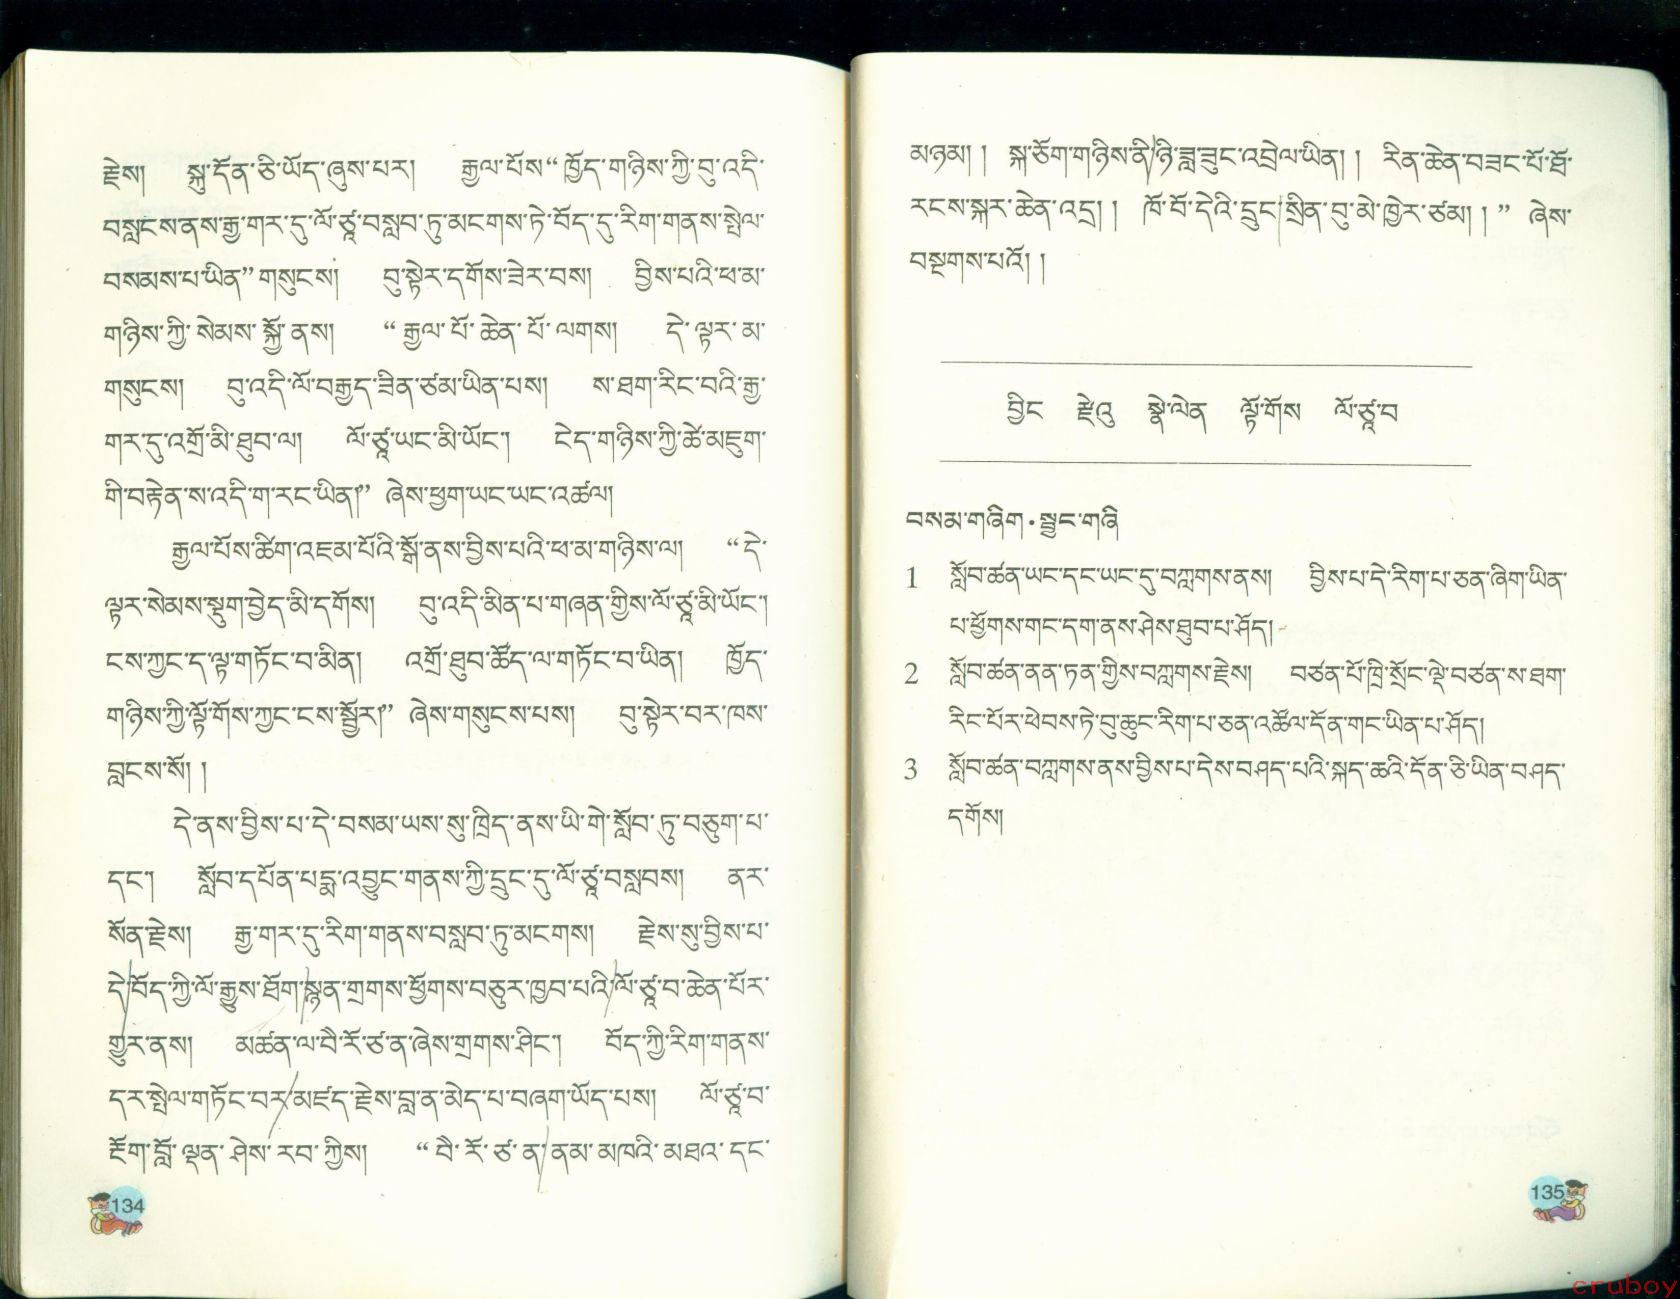 རྗེས།   སྐུ་དོན་ཅི་ཡོད་ཞུས་པར།   རྒྱལ་པོས“ཁྱོད་གཉིས་ཀྱི་བུ་འདི་
བསླངས་ནས་རྒྱ་གར་དུ་ལོ་ཙཱ་བསླབ་ཏུ་མངགས་ཏེ་བོད་དུ་རིག་གནས་སྤེལ་
བསམས་པ་ཡིན”གསུངས།   བུ་སྟེར་དགོས་ཟེར་བས།   བྱིས་པའི་ཕ་མ་
གཉིས་ཀྱི་སེམས་སྐྱོ་ནས།   “རྒྱལ་པོ་ཆེན་པོ་ལགས།   དེ་ལྟར་མ་
གསུངས།   བུ་འདི་ལོ་བརྒྱད་ཟིན་ཙམ་ཡིན་པས།   ས་ཐག་རིང་བའི་རྒྱ་
གར་དུ་འགྲོ་མི་ཐུབ་ལ།   ལོ་ཙཱ་ཡང་མི་ཡོང་།   ངེད་གཉིས་ཀྱི་ཚེ་མཇུག་
གི་བརྟེན་ས་འདི་ག་རང་ཡིན།” ཞེས་ཕྱག་ཡང་ཡང་འཚལ།
རྒྱལ་པོས་ཚིག་འཇམ་པོའི་སྒོ་ནས་བྱིས་པའི་ཕ་མ་གཉིས་ལ།   “དེ་
ལྟར་སེམས་སྡུག་བྱེད་མི་དགོས།   བུ་འདི་མིན་པ་གཞན་གྱིས་ལོ་ཙཱ་མི་ཡོང་།
ངས་ཀྱང་ད་ལྟ་གཏོང་བ་མིན།   འགྲོ་ཐུབ་ཚོད་ལ་གཏོང་བ་ཡིན།   ཁྱོད་
གཉིས་ཀྱི་ལྟོ་གོས་ཀྱང་ངས་སྦྱོར།” ཞེས་གསུངས་པས།   བུ་སྟེར་བར་ཁས་
བླངས་སོ། །
དེ་ནས་བྱིས་པ་དེ་བསམ་ཡས་སུ་ཁྲིད་ནས་ཡི་གེ་སློབ་ཏུ་བཅུག་པ་
དང་།   སློབ་དཔོན་པདྨ་འབྱུང་གནས་ཀྱི་དྲུང་དུ་ལོ་ཙཱ་བསླབས།   ནར་
སོན་རྗེས།   རྒྱ་གར་དུ་རིག་གནས་བསླབ་ཏུ་མངགས།   རྗེས་སུ་བྱིས་པ་
དེ་བོད་ཀྱི་ལོ་རྒྱུས་ཐོག་སྙན་གྲགས་ཕྱོགས་བཅུར་ཁྱབ་པའི་ལོ་ཙཱ་བ་ཆེན་པོར་
གྱུར་ནས།   མཚན་ལ་བཻ་རོ་ཙ་ན་ཞེས་གྲགས་ཤིང་།   བོད་ཀྱི་རིག་གནས་
དར་སྤེལ་གཏོང་བར་མཛད་རྗེས་བླ་ན་མེད་པ་བཞག་ཡོད་པས།   ལོ་ཙཱ་བ་
རྔོག་བློ་ལྡན་ཤེས་རབ་ཀྱིས།   “བཻ་རོ་ཙ་ན་ནམ་མཁའི་མཐའ་དང་
134
མཉམ། །  སྐ་ཅོག་གཉིས་ནི་ཉི་ཟླ་ཟུང་འབྲེལ་ཡིན། །  རིན་ཆེན་བཟང་པོ་ཐོ་
རངས་སྐར་ཆེན་འདྲ། །  ཁོ་བོ་དེའི་དྲུང་སྲིན་བུ་མེ་ཁྱེར་ཙམ། །” ཞེས་
བསྔགས་པའོ། །
བྱིང   རྫེའུ   སྣེ་ལེན   ལྟོ་གོས   ལོ་ཙཱ་བ
བསམ་གཞིག・སྦྱང་གཞི
1 སློབ་ཚན་ཡང་དང་ཡང་དུ་བཀླགས་ནས།   བྱིས་པ་དེ་རིག་པ་ཅན་ཞིག་ཡིན་
པ་ཕྱོགས་གང་དག་ནས་ཤེས་ཐུབ་པ་ཤོད།
2 སློབ་ཚན་ནན་ཏན་གྱིས་བཀླགས་རྗེས།   བཙན་པོ་ཁྲི་སྲོང་ལྡེ་བཙན་ས་ཐག་
རིང་པོར་ཕེབས་ཏེ་བུ་ཆུང་རིག་པ་ཅན་འཚོལ་དོན་གང་ཡིན་པ་ཤོད།
3 སློབ་ཚན་བཀླགས་ནས་བྱིས་པ་དེས་བཤད་པའི་སྐད་ཆའི་དོན་ཅི་ཡིན་བཤད་
དགོས།
135
cruboy